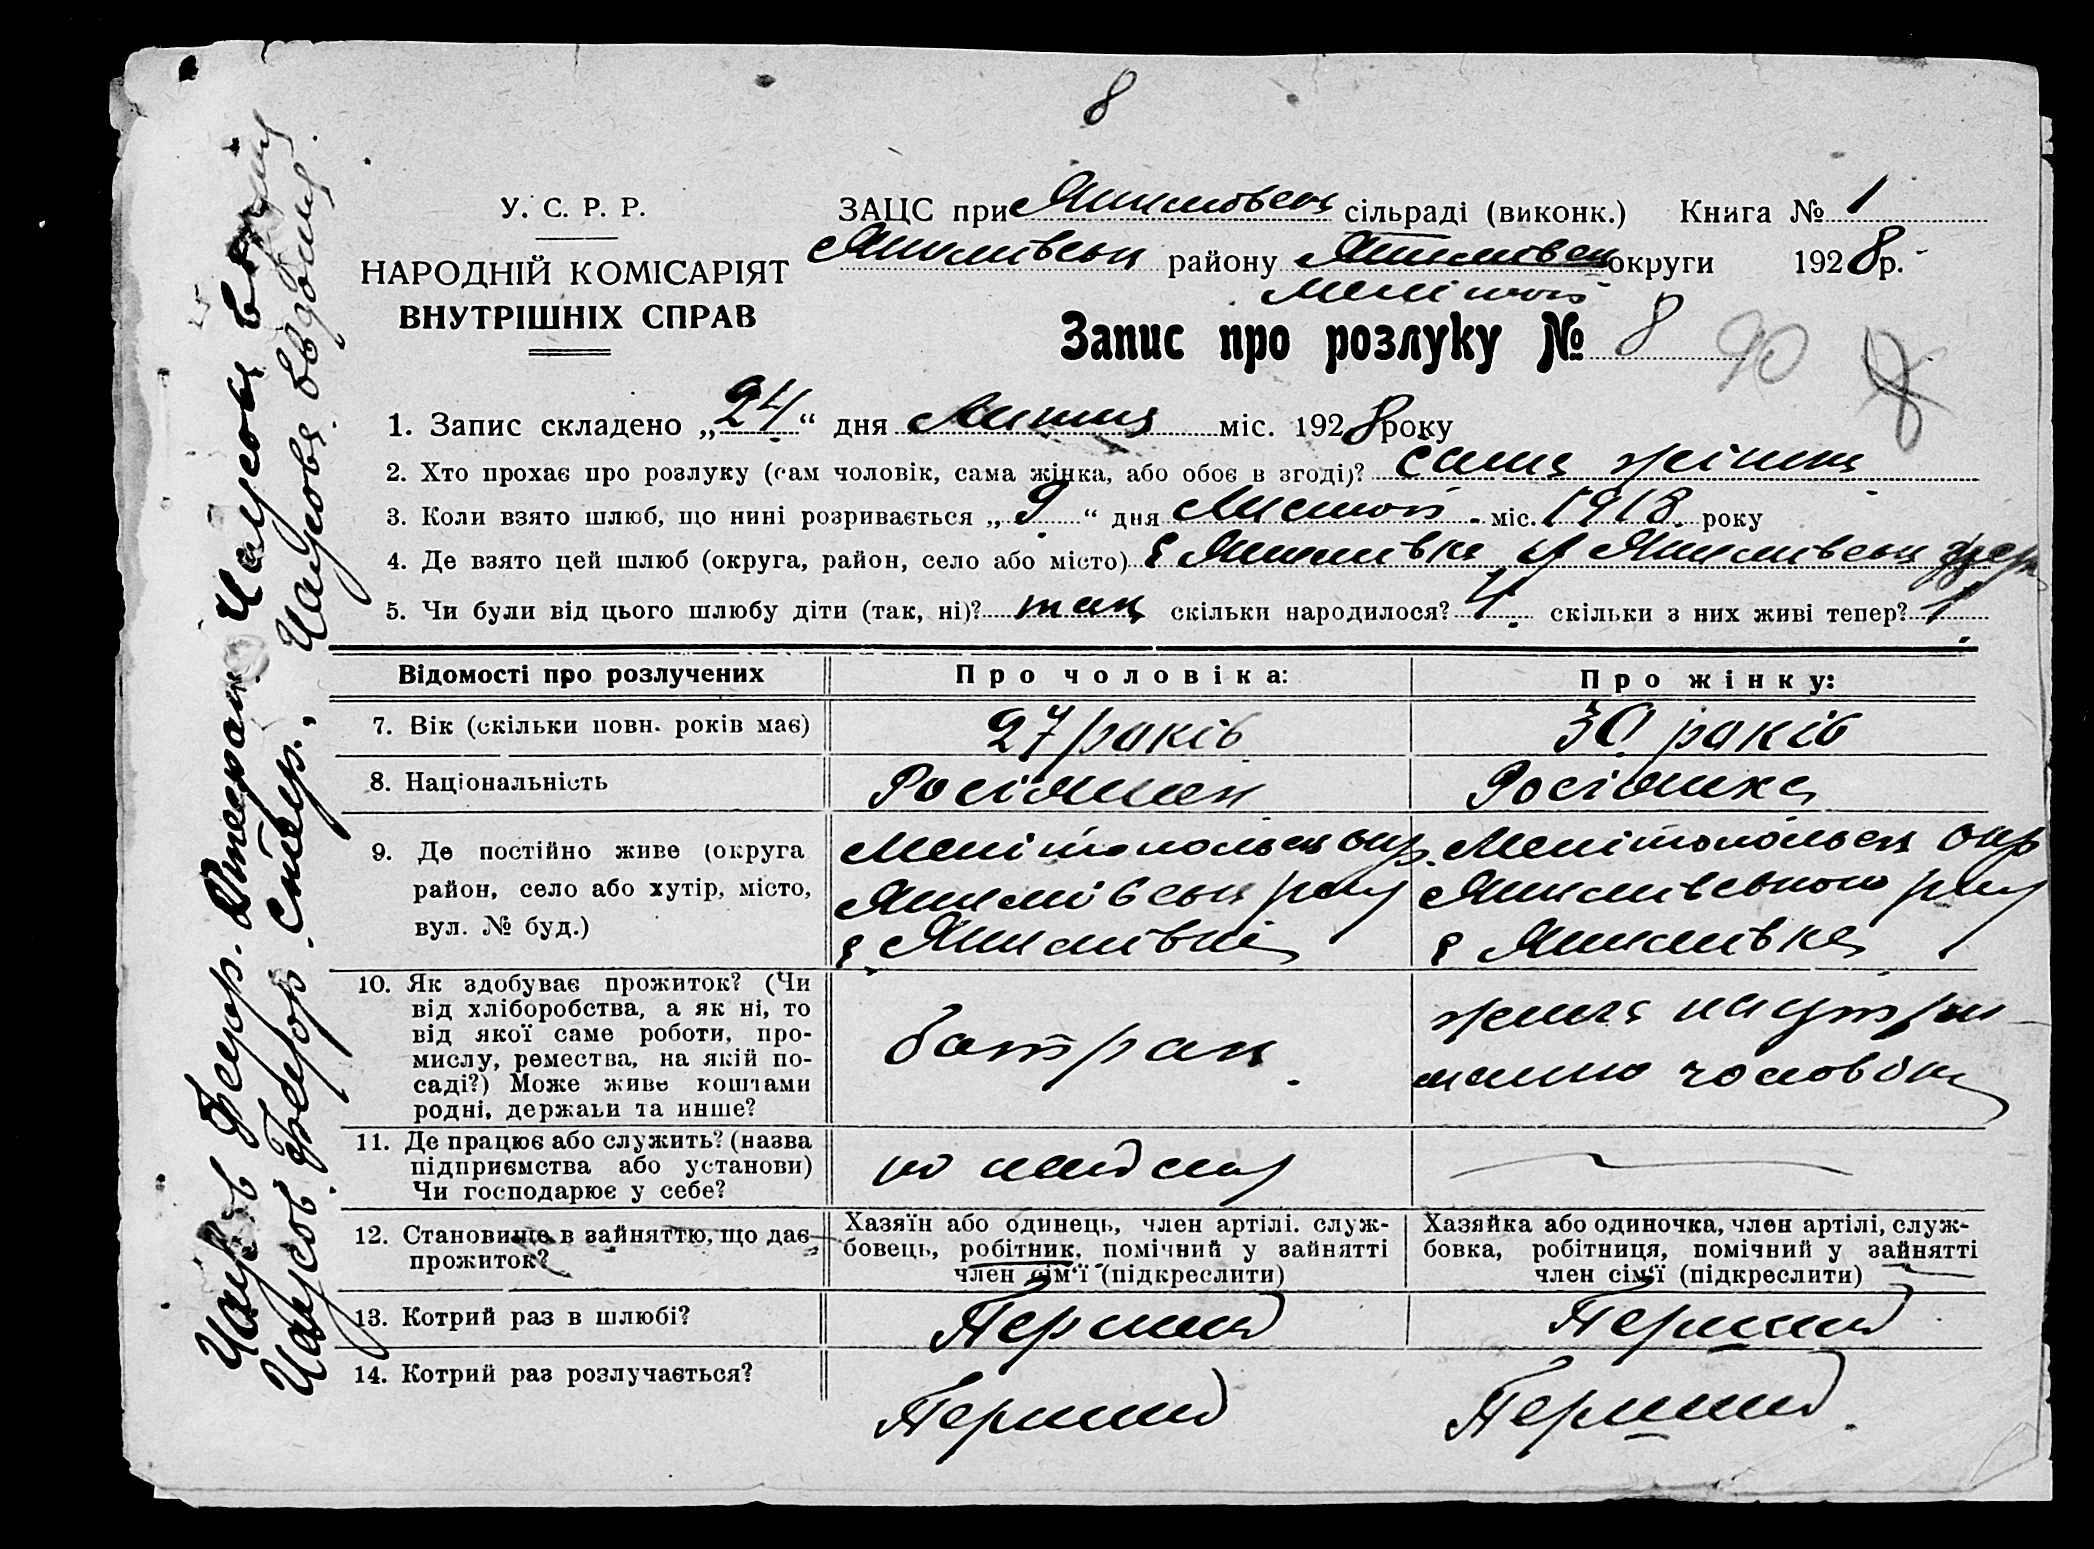 8
У. С. Р. Р.
НАРОДНІЙ КОМІСАРІЯТ
ВНУТРІШНІХ СПРАВ
ЗАЦС при Якимовськ сільраді (виконк.) Книга № 1
Якимівськ району Якимовськ округи 1928 р.
Меліто
Запис про розлуку № 8 90 8
1. Запис складено „24“ дня Липня міс. 1928 року
2. Хто прохає про розлуку (сам чоловік, сама жінка, або обоє в згоді)? сама жінка
3. Коли взято шлюб, що нині розривається „9“ дня Листоп. міс. 1918 року
4. Де взято цей шлюб (округа, район, село або місто) с Якимівка Якимівськ
5. Чи були від цього шлюбу діти (так, ні)? так скільки народилося? 4 скільки з них живі тепер? 1
Відомості про розлучених
Про чоловіка:
Про жінку:
7. Вік (скільки повн. років має)
27 років
30 років
8. Національність
Росіянин
Росіянка
9. Де постійно живе (округа
район, село або хутір, місто,
вул. № буд.)
Мелітопольськ окр.
Якимівськ рай
с Якимівкі
Мелітопольськ окр
Якимівського рай
с Якимівка
10. Як здобуває прожиток? (Чи
від хліборобства, а як ні, то
від якої саме роботи, про-
мислу, ремества, на якій по-
саді?) Може живе коштами
родні, держави та инше?
батрак.
жила на утри-
чоловіка
11. Де працює або служить? (назва
підприємства або установи)
Чи господарює у себе?
по найму
12. Становище в зайняттю, що дає
прожиток?
Хазяїн або одинець, член артілі. служ-
бовець, робітник, помічний у зайнятті
член сім‘ї (підкреслити)
Хазяйка або одиночка, член артілі, служ-
бовка, робітниця, помічний у зайнятті
член сім‘ї (підкреслити)
13. Котрий раз в шлюбі?
Перший
Перший
14. Котрий раз розлучається?
Перший
Перший.